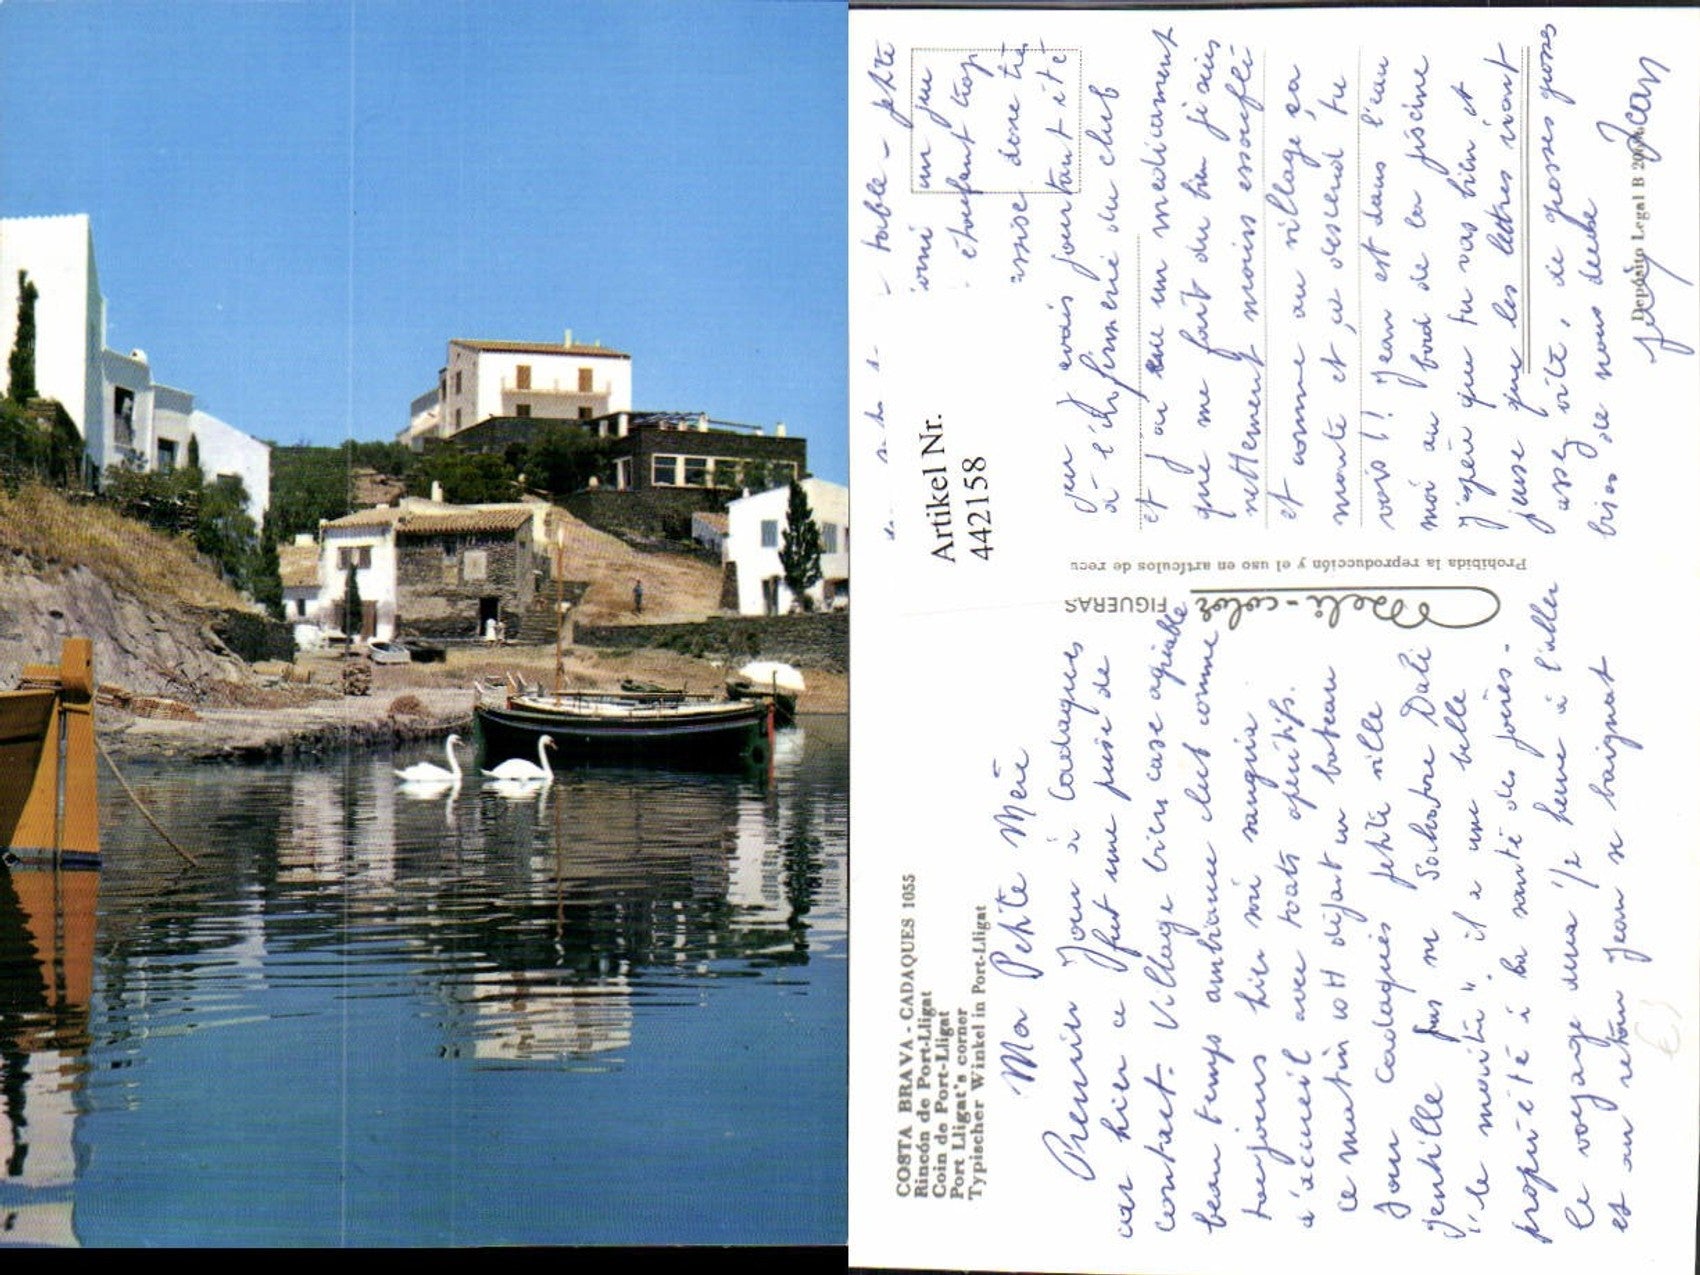 COSTA BRAVA - CADAQUES 1055
Rincón de Port-Lligat
Coin de Port-Lligat
Port Lligat's corner
Typischer Winkel in Port-Lligat
Ma Petite Mère
Premier Jour à Cadaques
car hier ce fut une prise de
contact. Village bien case agréable
beau temps ambiance club comme
toujours hier soir sangria
d'accueil avec toasts apéritifs.
ce matin 10H départ en bateau
pour Cadaquès petite ville
gentille puis Salvatore Dali
"le maître" il a une belle
propriété à la sortie du
le voyage dura 1/2 heure à l'aller
et au retour Jean se baignait
Meli-color FIGUERAS
Prohibida la reproducción y el uso en artículos de recu
Artikel Nr.
442158
table - petite
un peu
étouffant trop
donc très
peu j'avais pourtant été
à l'infirmerie du club
et j'ai eu un médicament
que me fait du bien je suis
nettement moins essouflé
et comme au village ça
monte et ça descend tu
vois!! Jean est dans l'eau
moi au bord de la piscine
J'espère que tu vas bien et
pense que les lettres iront
assez vite, de grosses grosses
bises de nous deux
Jean
Depósito Legal B